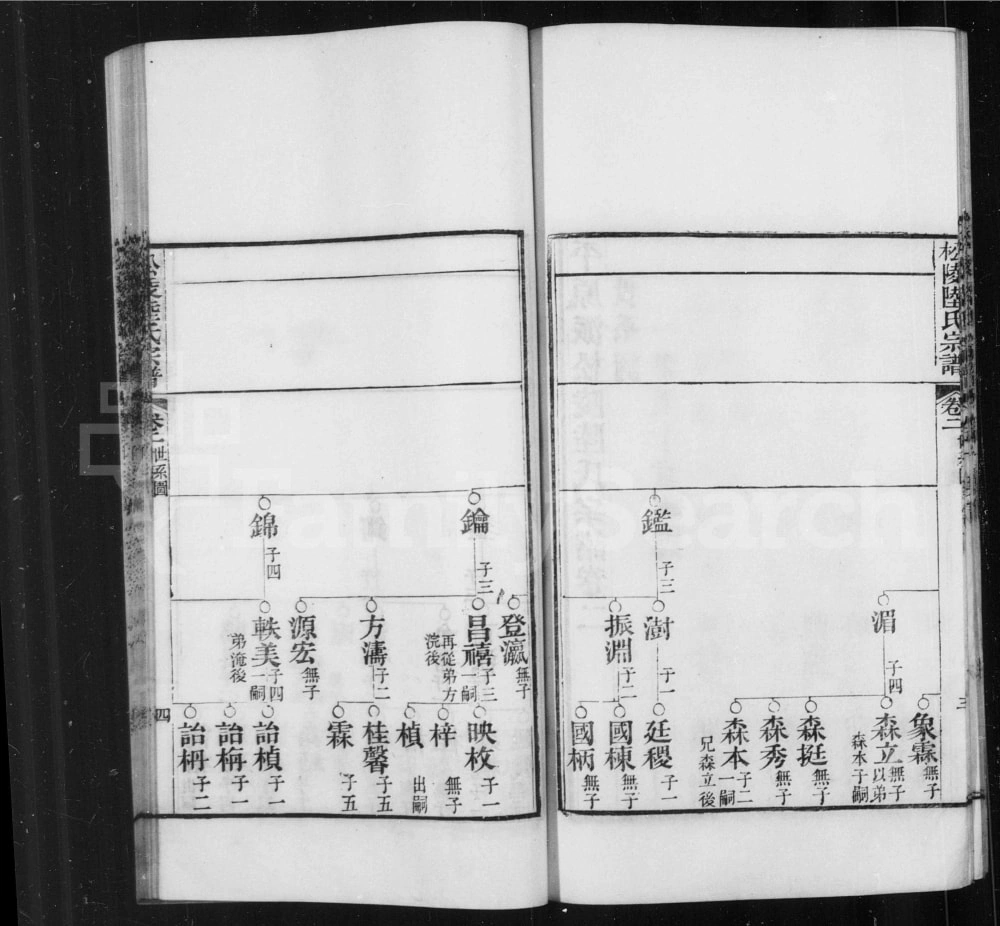 松陵陸氏宗譜
卷二
三
象霖 無子
湄 子四
森立 無子 以弟森本子嗣
森挺 無子
森秀 無子
森本 子二 一嗣兄森立後
鑑 子三
澍 子一
廷稷 子一
振淵 子二
國棟 無子
國柄 無子
登瀛 無子
鑰 子三
昌禧 子三 一嗣再從弟方浣後
映枚 子一
梓 無子
楨 出嗣
方濤 子二
桂馨 子五
霖 子五
源宏 無子
錦 子四
軼美 子四 一嗣弟淹後
詒楨 子一
詒栴 子一
詒枬 子二
松陵陸氏宗譜
卷二 世系圖
四
FamilySearch